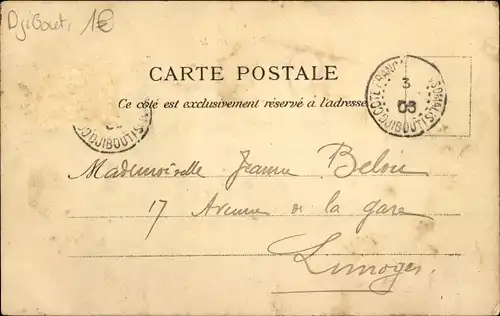 Djibouti 1€
CARTE POSTALE
Ce côté est exclusivement réservé à l'adresse
3
03
DJIBOUTI
DJIBOUTI
Mademoiselle Jeanne Belou
17 Avenue de la gare
Limoges